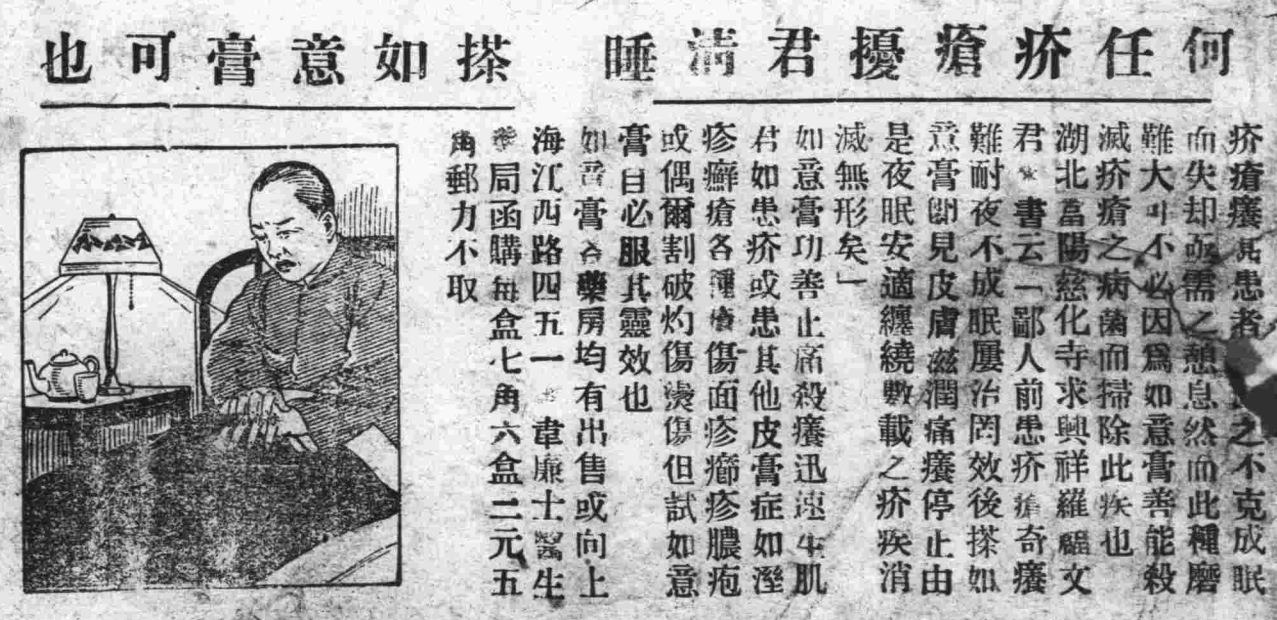 何任疥瘡擾君清睡
搽如意膏可也
疥瘡癢甚患者之不克成眠
而失却亟需之憩息然而此種磨
難大可不必因爲如意膏善能殺
滅疥瘡之病菌而掃除此疾也
湖北當陽慈化寺求興祥羅文
君書云「鄙人前患疥瘡奇癢
難耐夜不成眠屢治罔效後搽如
意膏卽見皮膚滋潤痛癢停止由
是夜眠安適纏繞數載之疥疾消
滅無形矣」
如意膏功善止痛殺癢迅速生肌
君如患疥或患其他皮膏症如溼
疹癬瘡各種傷面疹癤疹膿疱
或偶爾割破灼傷燙傷但試如意
膏自必服其靈效也
如意膏各藥房均有出售或向上
海江西路四五一號韋廉士醫生
藥局函購每盒七角六盒二元五
角郵力不取